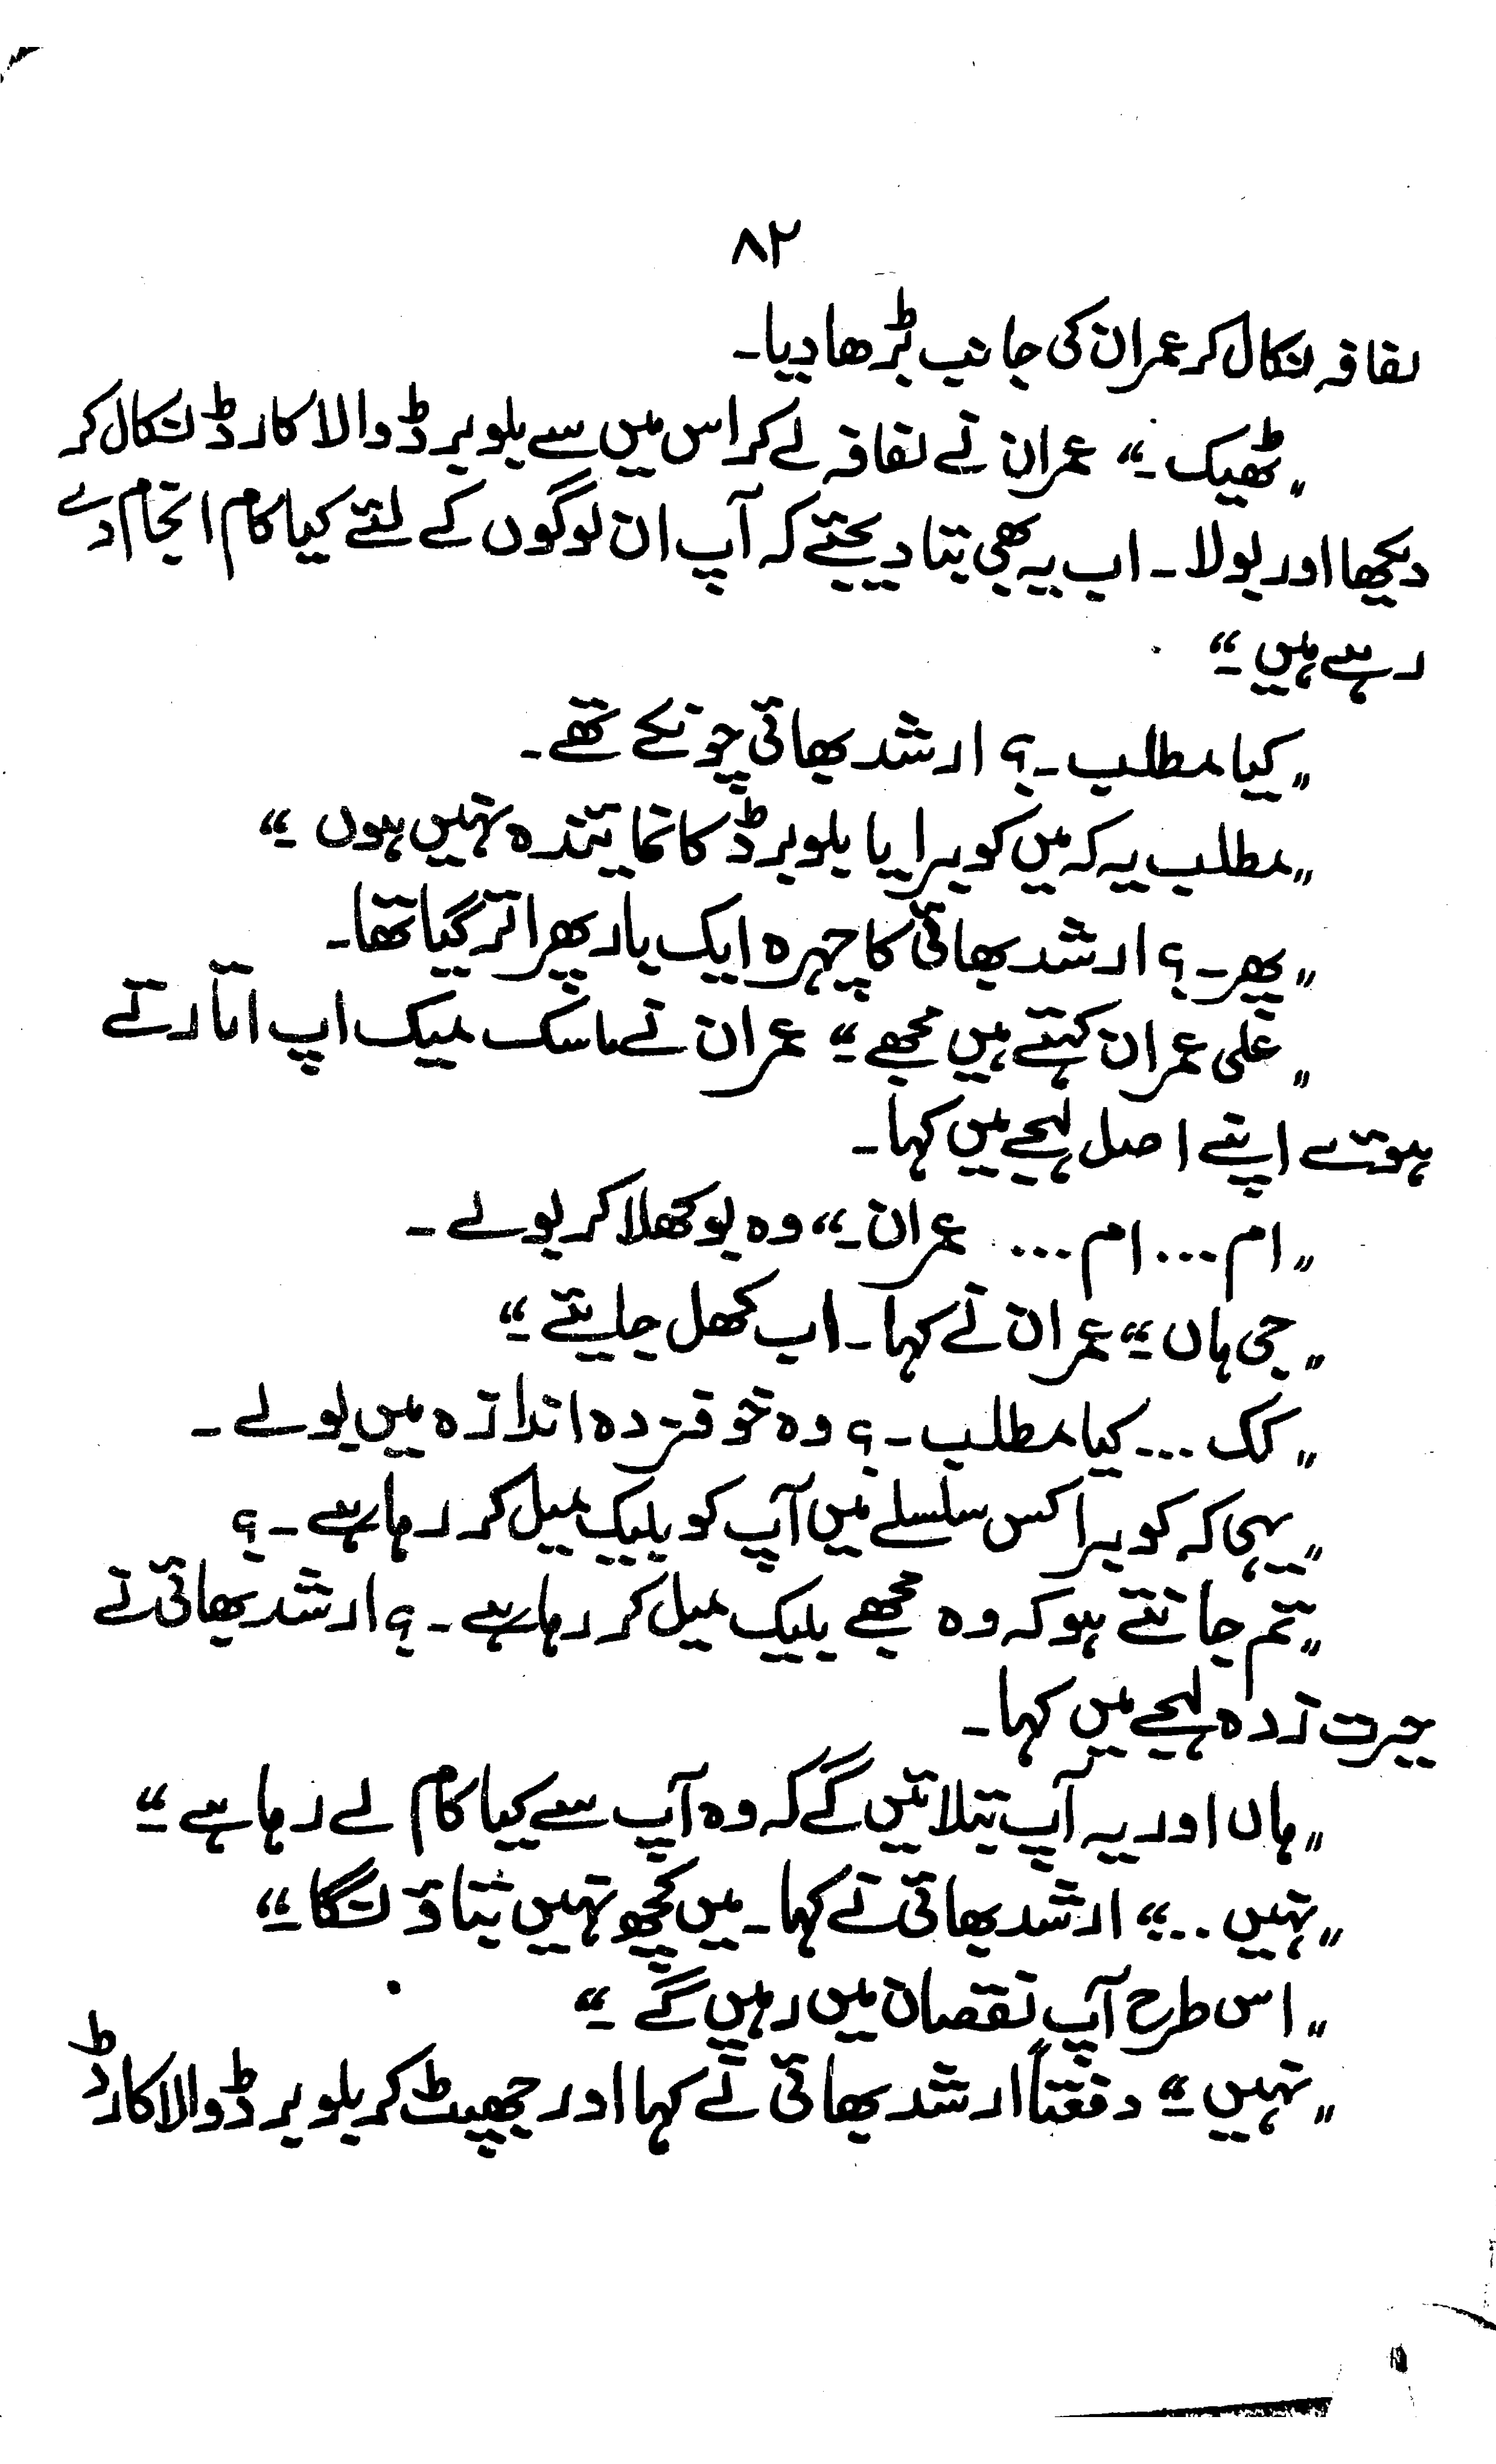 ۸۲
لفافہ نکال کر عمران کی جانب بڑھا دیا۔
„ ٹھیک ۔“ عمران نے لفافہ لے کر اس میں سے بلو برڈ والا کارڈ نکال کر
دیکھا اور بولا۔ اب یہ بھی بتا دیجئے کہ آپ ان لوگوں کے لئے کیا کام انجام دے
رہے ہیں ۔“
„ کیا مطلب ۔؟ ارشد بھائی چونکے تھے۔
„ مطلب یہ کہ میں کوبرا یا بلو برڈ کا نمائیندہ نہیں ہوں ۔“
„ پھر ۔؟ ارشد بھائی کا چہرہ ایک بار پھر اتر گیا تھا۔
„ علی عمران کہتے ہیں مجھے ۔“ عمران نے ماسک میک اپ اتارتے
ہوئے اپنے اصل لہجے میں کہا۔
„ ام ... ام ... عمران ۔“ وہ بوکھلا کر بولے ۔
„ جی ہاں ۔“ عمران نے کہا۔ اب کھل جایئے ۔“
„ کک ... کیا مطلب ۔؟ وہ خوفزدہ اندازہ میں بولے ۔
„ یہی کہ کوبرا کس سلسلے میں آپ کو بلیک میل کر رہا ہے ۔؟
„ تم جانتے ہو کہ وہ مجھے بلیک میل کر رہا ہے ۔؟ ارشد بھائی نے
حیرت زدہ لہجے میں کہا۔
„ ہاں اور یہ آپ بتلائیں گے کہ وہ آپ سے کیا کام لے رہا ہے ۔“
„ نہیں ..۔“ ارشد بھائی نے کہا۔ میں کچھ نہیں بتاؤ نگا ۔“
„ اس طرح آپ نقصان میں رہیں گے ۔“
„ نہیں ۔“ دفعتاً ارشد بھائی نے کہا اور جھپٹ کر بلو برڈ والا کارڈ